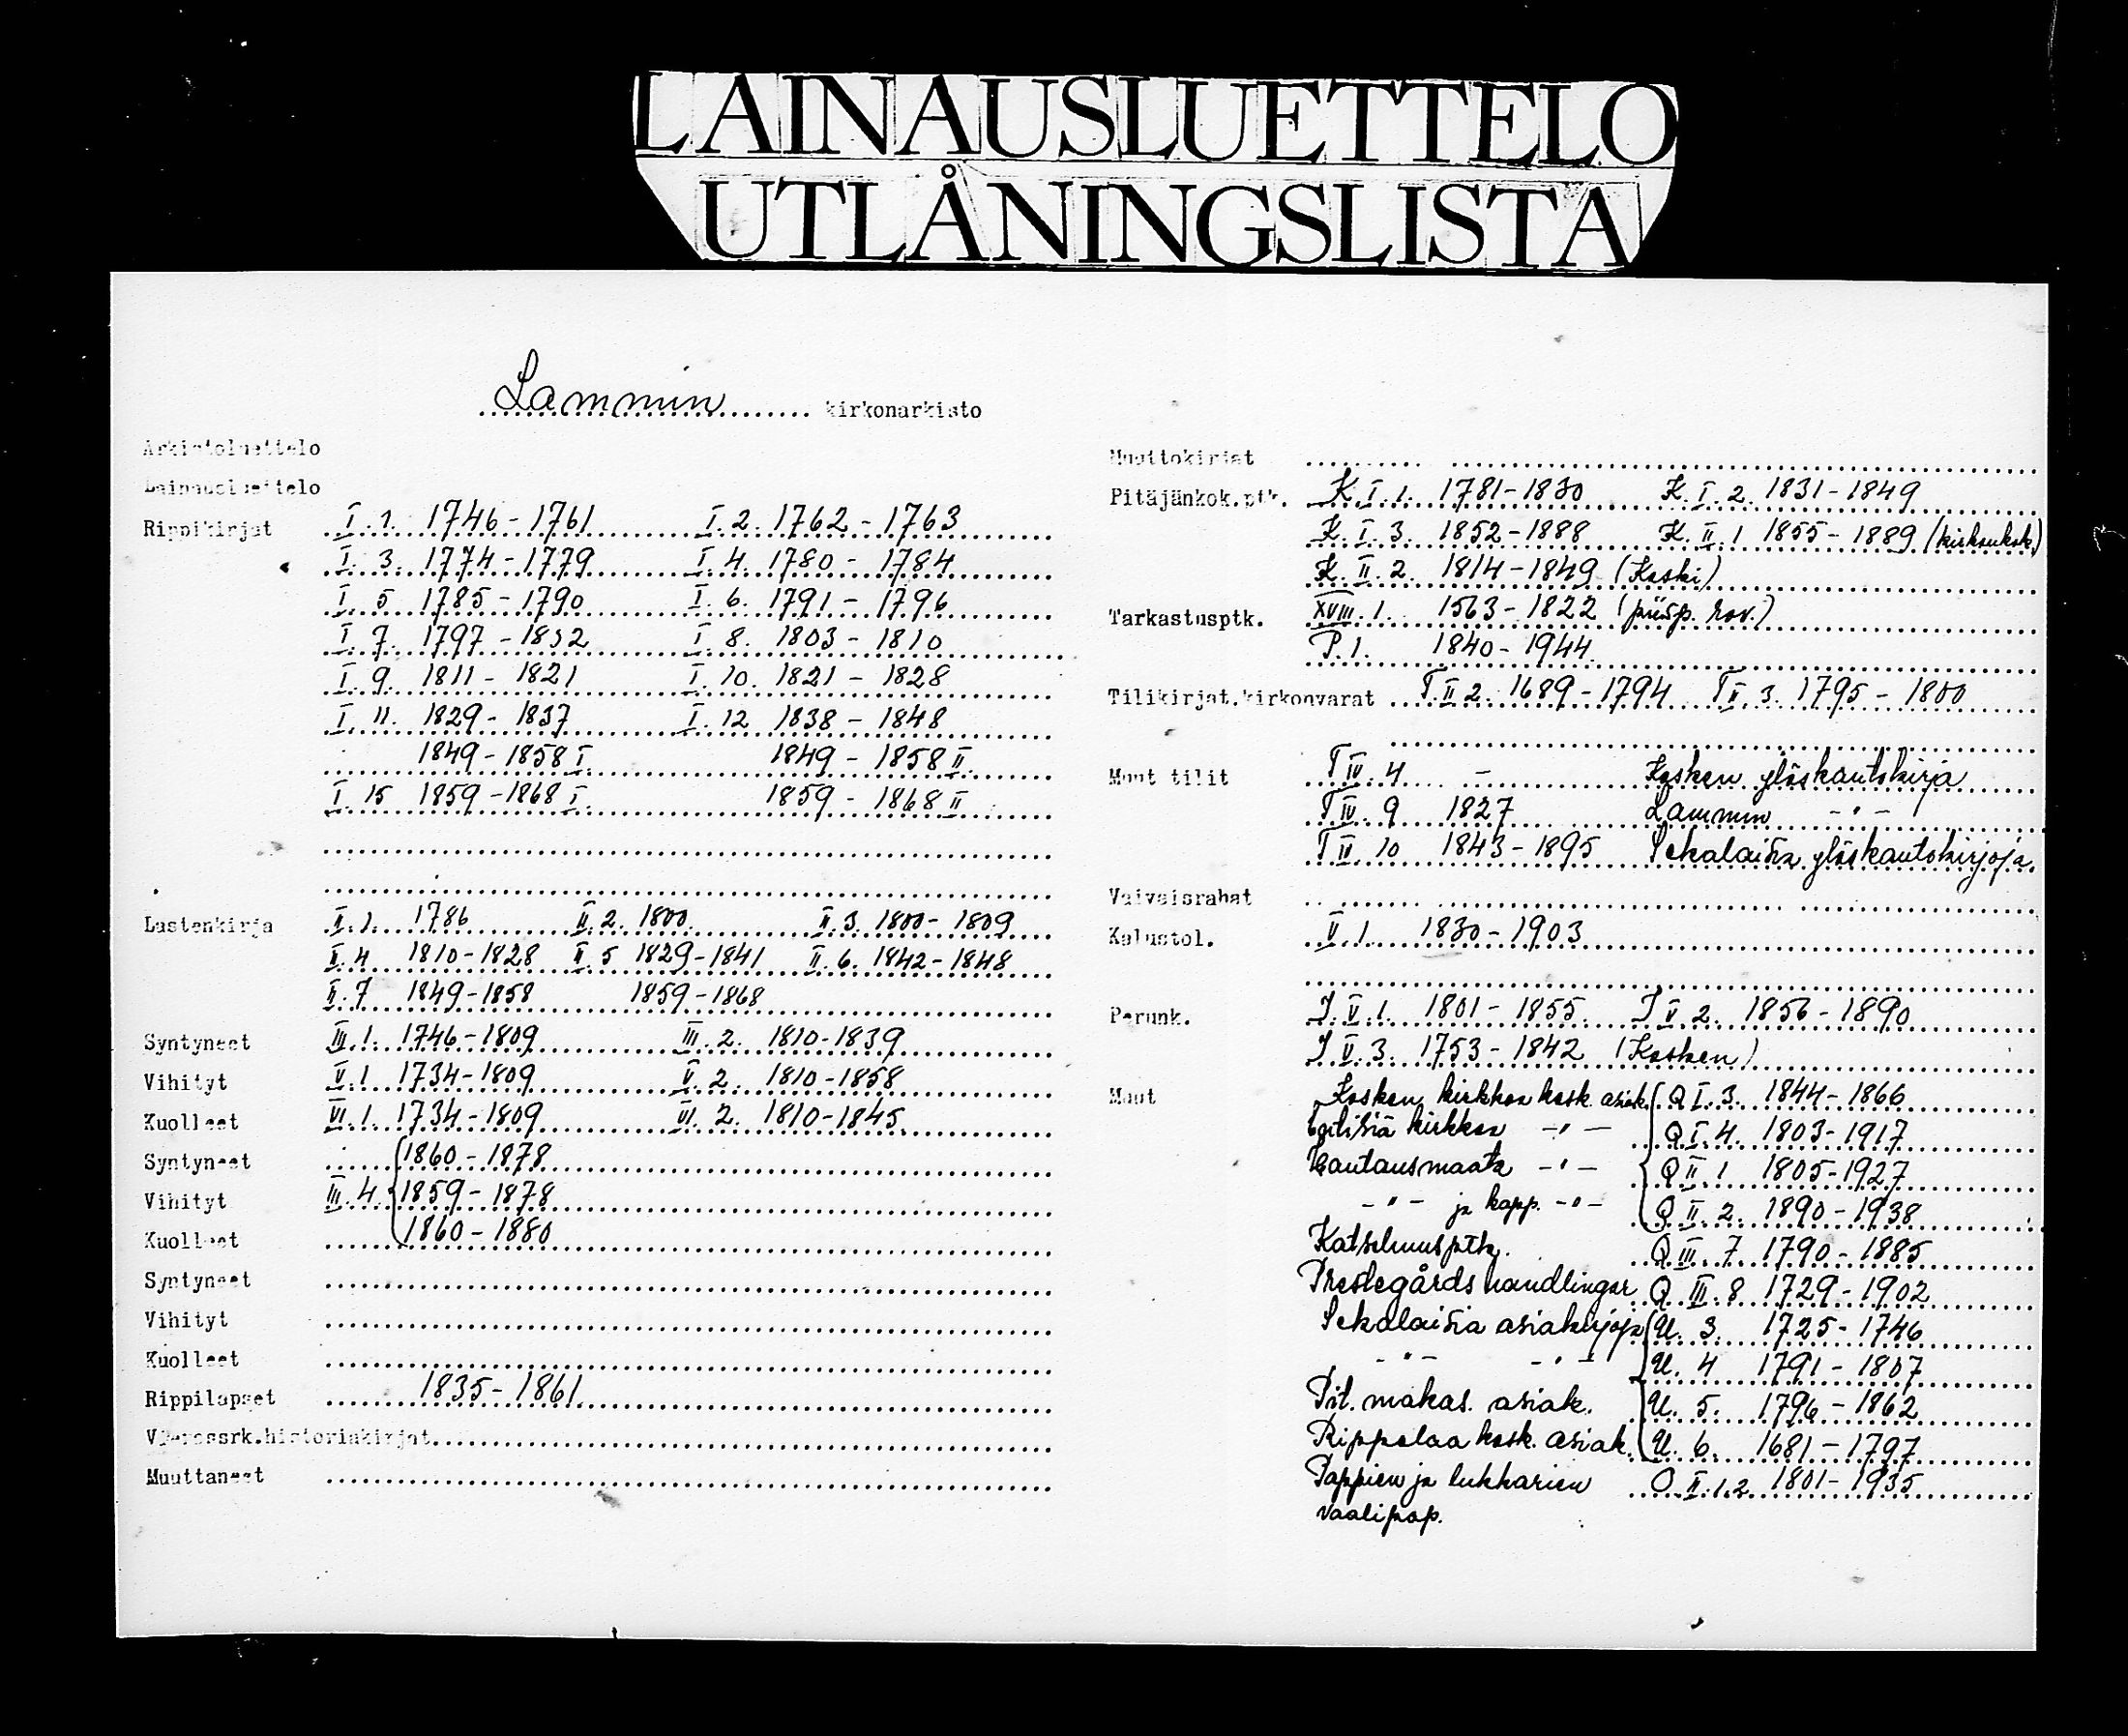 LAINAUSLUETTELO
UTLÅNINGSLISTA
Lammin kirkonarkisto
Arkistoluettelo
Lainausluettelo
Rippikirjat I.1. 1746-1761 I.2. 1762-1763
I.3. 1774-1779 I.4. 1780-1784
I.5 1785-1790 I.6. 1791-1796
I.7. 1797-1802 I.8. 1803-1810
I.9. 1811-1821 I.10. 1821-1828
I.11. 1829-1837 I.12 1838-1848
1849-1858 I. 1849-1858 II.
I.15 1859-1868 I. 1859-1868 II
Lastenkirja II.1. 1786 II.2. 1800. II.3. 1800-1809
II.4 1810-1828 II.5 1829-1841 II.6. 1842-1848
II.7 1849-1858 1859-1868
Syntyneet III.1. 1746-1809 III.2. 1810-1839
Vihityt V.1 1734-1809 V.2. 1810-1858
Kuolleet VI.1. 1734-1809 VI.2. 1810-1845
Syntyneet 1860-1878
Vihityt III.4. 1859-1878
Kuolleet 1860-1880
Syntyneet
Vihityt
Kuolleet
Rippilapset 1835-1861
Vierassrk.historiakirjat
Muuttaneet
Muuttokirjat
Pitäjänkok.ptk. K.I.1. 1781-1830 K.I.2. 1831-1849
K.I.3. 1852-1888 K.II.1 1855-1889 (kirkonkok.)
K.II.2. 1814-1849 (Koski)
Tarkastusptk. XVIII.1. 1563-1822 (piisp. rov.)
P.1. 1840-1944
Tilikirjat.kirkonvarat T.II 2. 1689-1794 T II.3. 1795-1800
Muut tilit T IV.4 - Kosken yläskantokirja
T IV.9 1827 Lammin -"-
T IV.10 1843-1895 Sekalaisia yläskantokirjoja
Vaivaisrahat
Kalustol. V.1. 1830-1903
Perunk. I V.1. 1801-1855 I V.2. 1856-1890
I V.3. 1753-1842 (Kosken)
Muut Kosken kirkkoa kosk. asiak. Q I.3. 1844-1866
kirkkoa -"- Q I.4. 1803-1917
Hautausmaata -"- Q II.1 1805-1927
-"- ja kapp. -"- Q II.2. 1890-1938
Katselmusptk. Q III.7. 1790-1885
Prestegårds handlingar Q III.8 1729-1902
Sekalaisia asiakirjoja U.3. 1725-1746
-"- -"- U.4 1791-1807
Pit. makas. asiak. U.5. 1796-1862
Rippalaa kosk. asiak. U.6. 1681-1797
Pappien ja lukkarien O II.1.2 1801-1935
vaalipap.